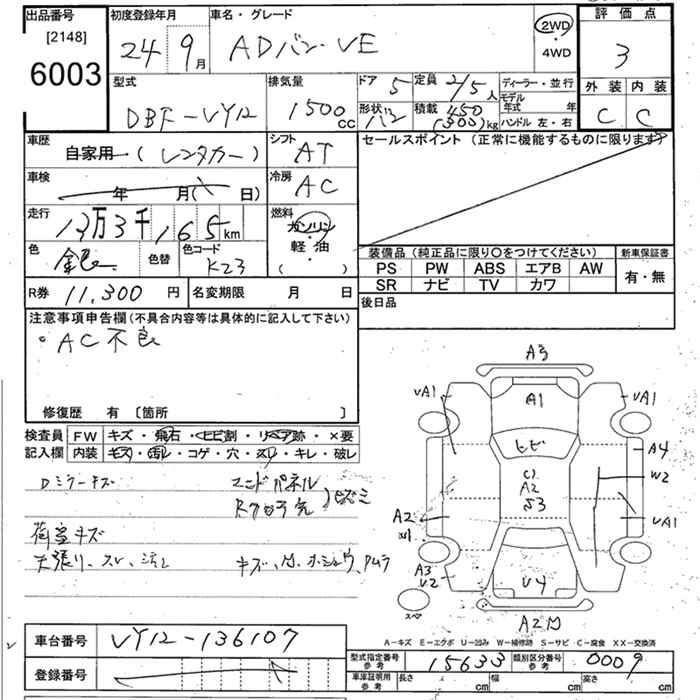 出品番号
[2148]
6003
初度登録年月
24 9月
車名・グレード
ADバン VE
2WD
4WD
評価点
3
外装 内装
C C
型式
DBF-VY12
排気量
1500cc
ドア 5
定員 2/5人
形状 バン
積載 450 (300)kg
ディーラー・並行
モデル年式 年
ハンドル 左・右
車歴
自家用 (レンタカー)
シフト
AT
車検
年 月( 日)
冷房
AC
走行
13万3千165km
燃料
ガソリン
軽・油
( )
色
銀
色替
色コード
K23
R券 11,300円
名変期限 月 日
セールスポイント (正常に機能するものに限ります)
装備品 (純正品に限り〇をつけてください)
PS PW ABS エアB AW
SR ナビ TV カワ
新車保証書
有・無
後日品
注意事項申告欄(不具合内容等は具体的に記入して下さい)
・AC不良
修復歴 有 〔箇所 〕
検査員記入欄
FW キズ・飛石・ヒビ割・リペア跡・×要
内装 キズ・汚レ・コゲ・穴・スレ・キレ・破レ
Dミラーキズ
荷室キズ
天張り、スレ、汚レ
A3
A1
UA1
UA1
ヒビ
A4
W2
A2
S3
UA1
A2
A3
U2
U4
スペア
A-キズ E-エクボ U-凹み W-補修跡 S-サビ C-腐食 XX-交換済
車台番号 VY12-136107
登録番号
型式指定番号 参考 15633
類別区分番号 参考 0009
車庫証明用 参考 長さ cm 幅 cm 高さ cm